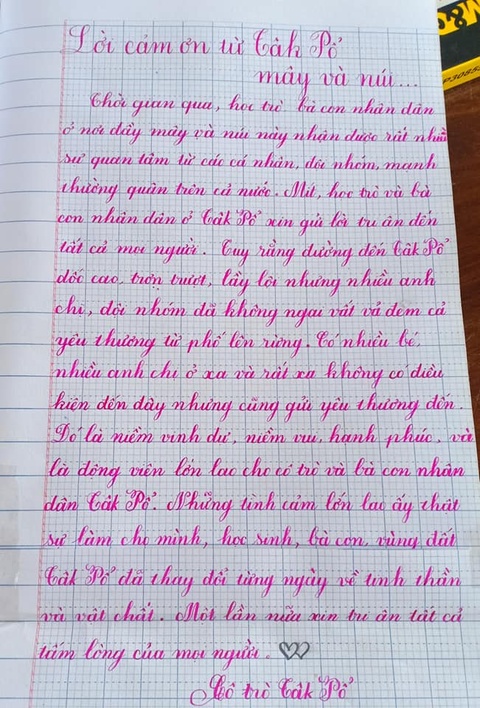 Lời cảm ơn từ Tăk Pổ
mây và núi...
Thời gian qua, học trò, bà con nhân dân
ở nơi đầy mây và núi này nhận được rất nhiều
sự quan tâm từ các cá nhân, đội nhóm, mạnh
thường quân trên cả nước. Mít, học trò và bà
con nhân dân ở Tăk Pổ xin gửi lời tri ân đến
tất cả mọi người. Tuy rằng đường đến Tăk Pổ
dốc cao, trơn trượt, lầy lội nhưng nhiều anh
chị, đội nhóm đã không ngại vất vả đem cả
yêu thương từ phố lên rừng. Có nhiều bé,
nhiều anh chị ở xa và rất xa không có điều
kiện đến đây nhưng cũng gửi yêu thương đến.
Đó là niềm vinh dự, niềm vui, hạnh phúc, và
là động viên lớn lao cho cô trò và bà con nhân
dân Tăk Pổ. Những tình cảm lớn lao ấy thật
sự làm cho mình, học sinh, bà con, vùng đất
Tăk Pổ đã thay đổi từng ngày về tinh thần
và vật chất. Một lần nữa xin tri ân tất cả
tấm lòng của mọi người.
Cô trò Tăk Pổ